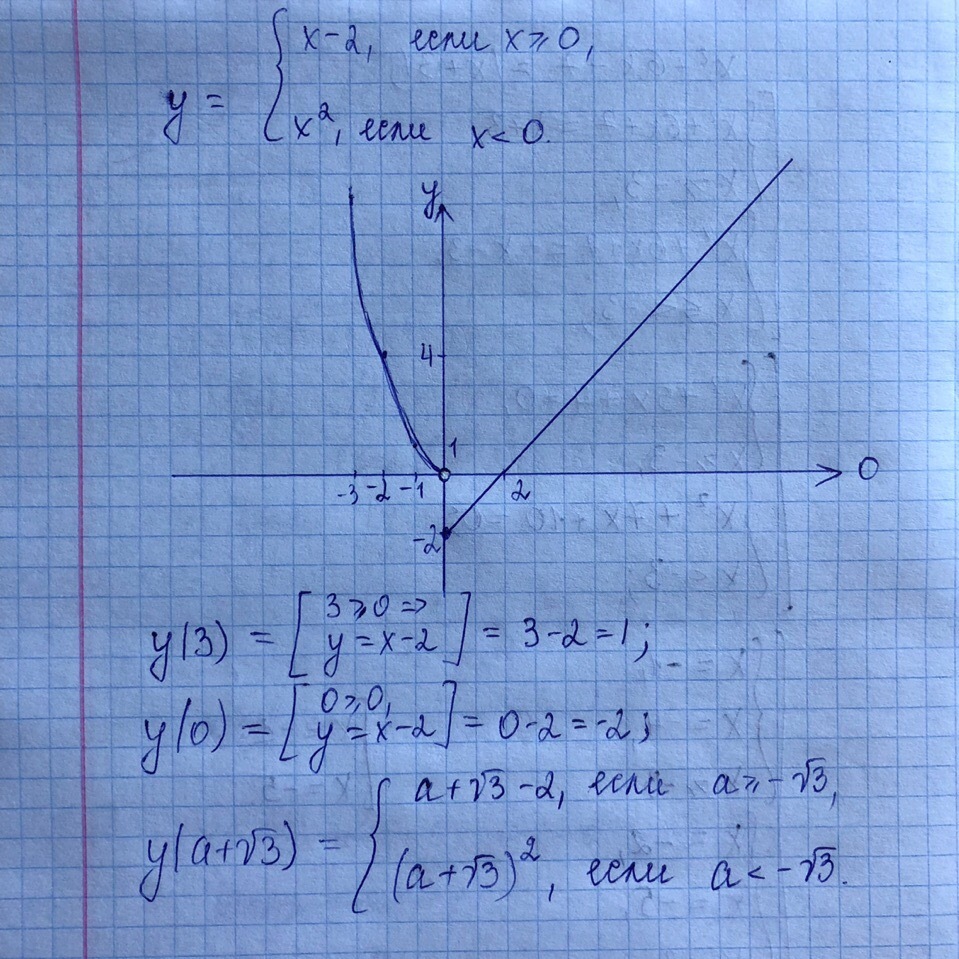 y = { x-2, если x ⩾ 0,
x², если x < 0.
y
4
1
-3 -2 -1 2 0
-2
y(3) = [ 3 ⩾ 0 ⇒ y = x-2 ] = 3-2 = 1;
y(0) = [ 0 ⩾ 0, y = x-2 ] = 0-2 = -2;
y(a+√3) = { a+√3 -2, если a ⩾ -√3,
(a+√3)², если a < -√3.